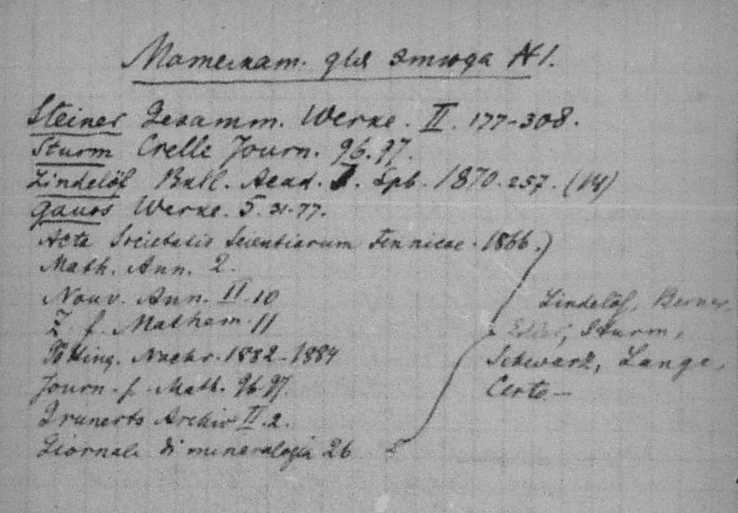 Математ. для этюда №1.
Steiner Gesamm. Werke. II. 177-308.
Sturm Crelle Journ. 96.97.
Lindelöf Bull. Acad. Spb. 1870. 257. (14)
Gauss Werke. 5. 31-77.
Acta Societatis Scientiarum Fennicae. 1866.
Math. Ann. 2.
Nouv. Ann. II. 10
Z. f. Mathem. 11
Götting. Nachr. 1882-1884
Journ. f. Math. 96.97.
Grunerts Archiv II. 2.
Giornale di mineralogia 26
Lindelöf, Berner,
Edler, Sturm,
Schwarz, Lange,
Certo —